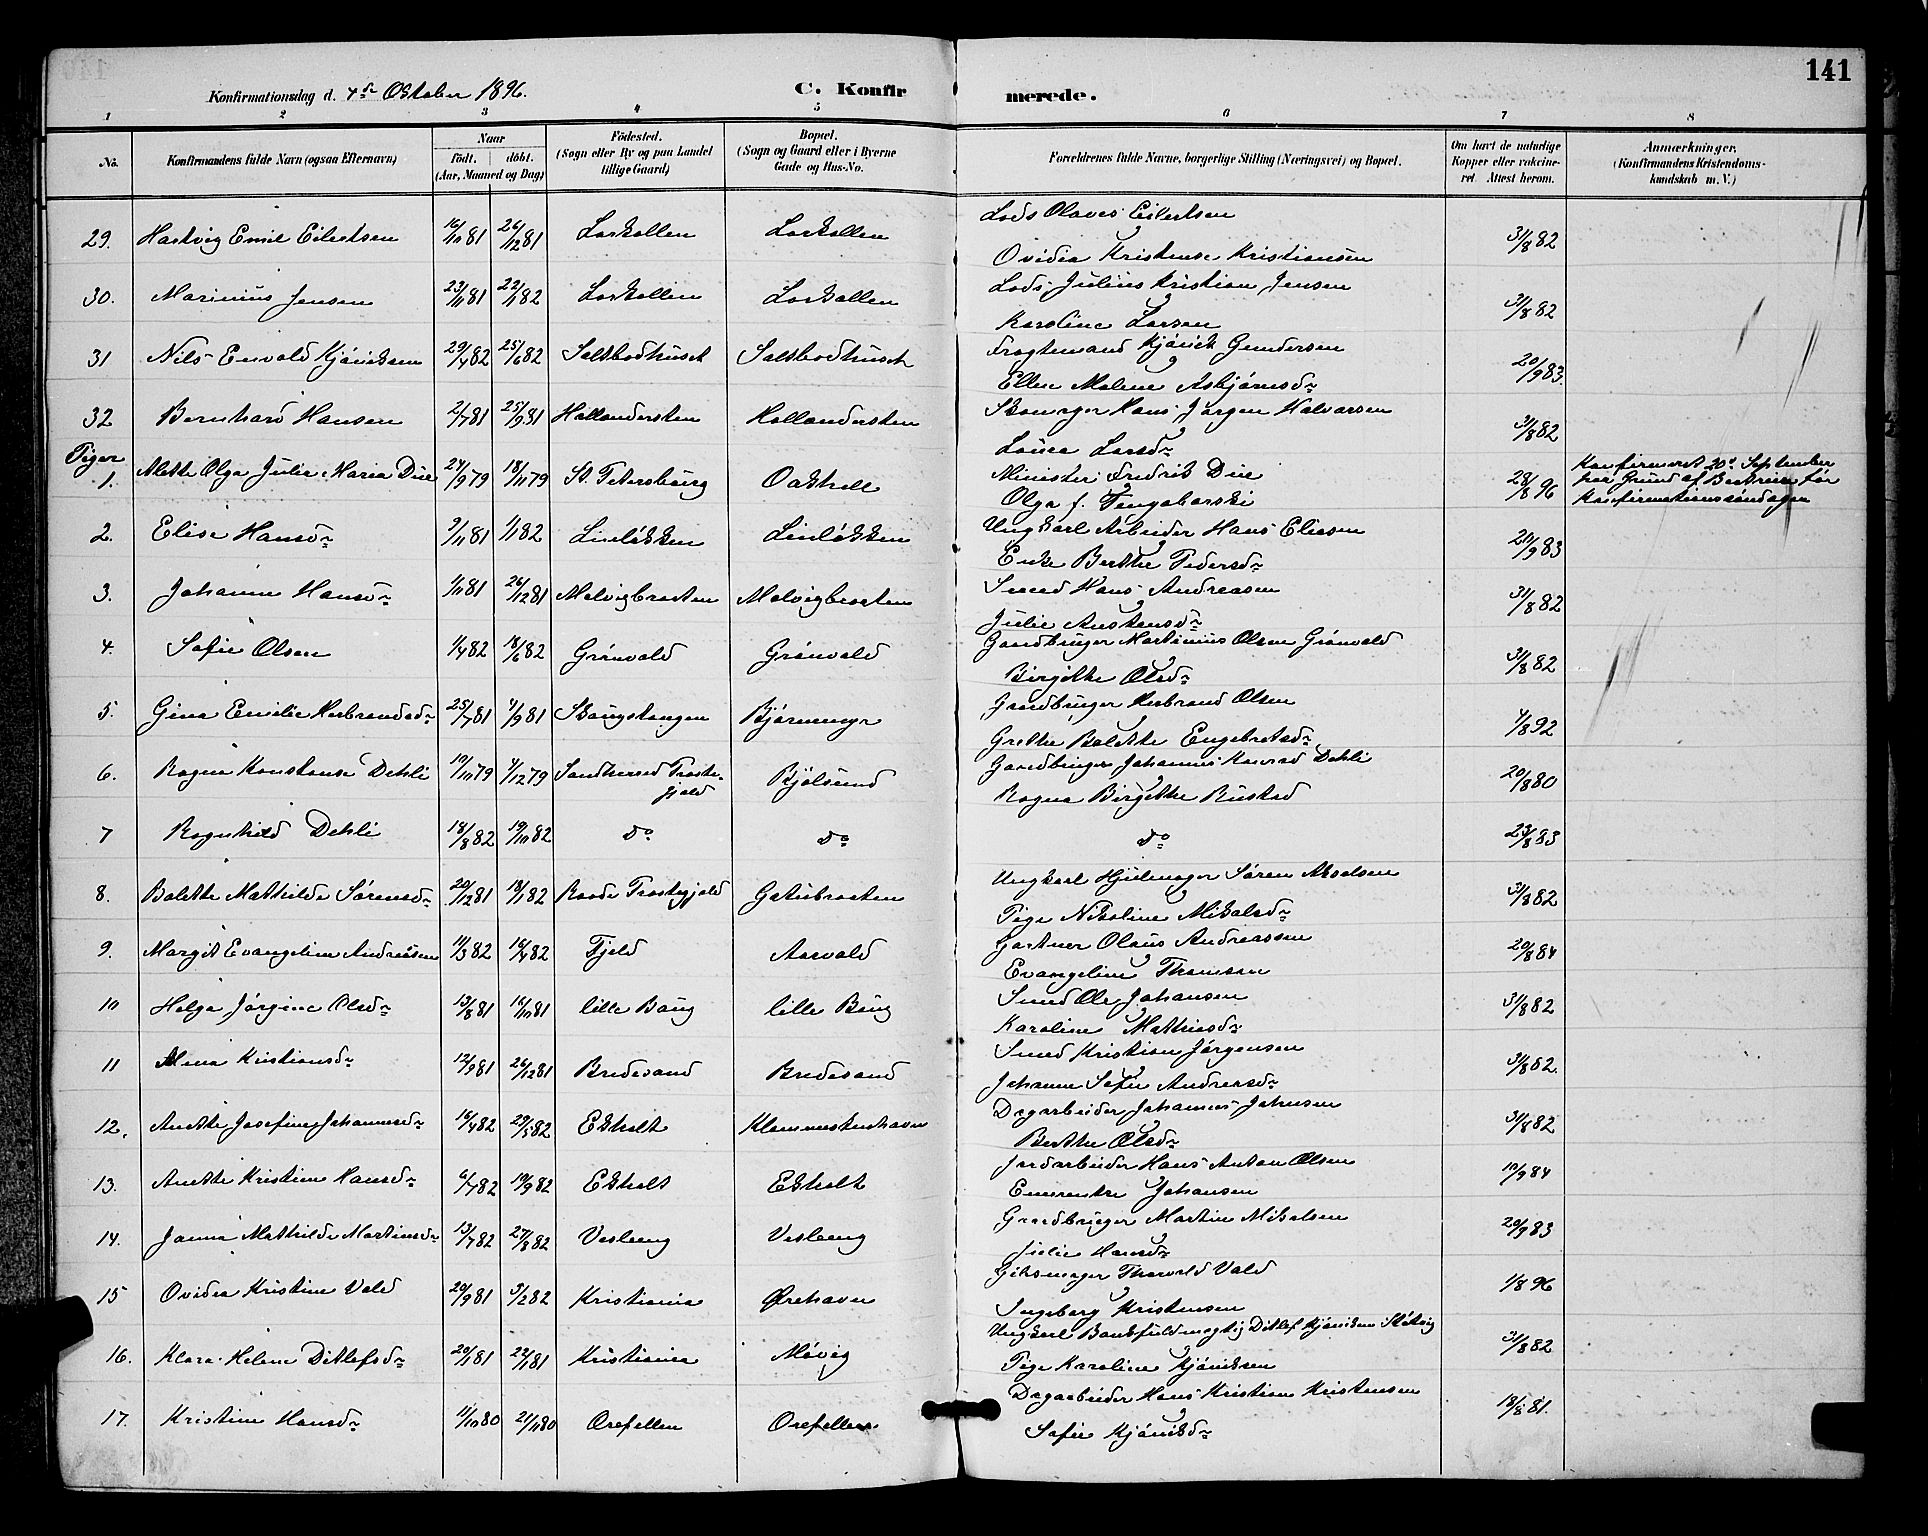 141
Konfirmationsdag d. 4de Oktober 1896. C. Konfirmerede.
1 2 3 4 5 6 7 8
No. Konfirmandens fulde Navn (ogsaa Efternavn) Naar födt. döbt. (Aar, Maaned og Dag) Födested. (Sogn eller By og paa Landet tillige Gaard) Bopæl. (Sogn og Gaard eller i Byerne Gade og Hus-No. Forældrenes fulde Navne, borgerlige Stilling (Næringsvei) og Bopæl. Om havt de naturlige Kopper eller vakcineret. Attest herom. Anmærkninger. (Konfirmandens Kristendomskundskab m. V.)
29. Hartvig Emil Eilertsen 16/10 81 26/12 81 Larkollen Larkollen Lods Olaves Eilertsen
Ovidia Kristense Kristiansen 31/8 82
30. Marinius Jensen 23/11 81 22/1 82 Larkollen Larkollen Lods Julius Kristian Jensen
Karoline Larsen 31/8 82
31 Nils Envald Kjöniksen 29/4 82 25/6 82 Saltbodhuset Saltbodhuset Fragtemand Kjönick Gundersen
Ellen Malene Asbjörnsdr 20/9 83.
32 Bernhard Hansen 2/7 81 25/9 81 Hollendersten Hollendersten Skomager Hans Jörgen Halvorsen
Lovisa Larsdr 31/8 82
Piger
1. Mette Olga Julie Maria Due 24/9 79 18/11 79 St. Petersburg Oakhill Minister Fredrik Due
Olga f. 28/8 96 Konfirmeret 20de September
paa Grund af Bortreise før
Konfirmationssöndagen
2. Elise Hansdr 9/11 81 1/1 82 Linlökken Linlökken Ungkarl Arbeider Hans Eliasen
Enke Berthe Pedersdr 20/9 83
3. Johanne Hansdr 1/11 81 26/12 81 Malvigbraaten Malvigbraaten Smed Hans Andreasen
Julie Austensdr 31/8 82
4. Sofie Olsen 1/4 82 18/6 82 Grönvold Grönvold Gaardbruger Martinius Olsen Grönvold
Birgitte Olsdr 31/8 82
5. Gina Emilie Herbrandsdr 25/7 81 4/9 81 Skaugstangen Björnemyr Gaardbruger Herbrand Olsen
Grethe Bolette Engebretsdr 4/8 92
6. Ragna Konstanse Dehli 10/10 79 4/12 79 Sandherred Froste-
gjeld Bjölsund Gaardbruger Johannes Konrad Dehli
Ragna Birgitte Rustad 20/8 80
7 Ragnhild Dehli 18/8 82 19/10 82 do do do 23/8 83
8. Bolette Mathilde Sörensdr 20/12 81 18/1 82 Raade Gatubraaten Ungkarl Hjulmager Sören Akselsen
Pige Nikoline Mikalsdr 31/8 82
9. Margit Evangeline Andreasen 11/3 82 16/4 82 Fjeld Aarvold Gartner Olaus Andreassen
Evangeline Thomsen 20/8 84
10 Helga Jörgine Olsdr 13/8 81 16/10 81 lille Baug lille Baug Smed Ole Johansen
Karoline Mathiasdr 31/8 82
11 Alma Kristiansdr 12/9 81 26/12 81 Bredesand Bredesand Smed Kristian Jörgensen
Johanne Sofie Andreasdr 31/8 82.
12. Anette Josefine Johannesdr 16/4 82 29/5 82 Ekholt Klommestenhavn Dagarbeider Johannes Johnsen
Berthe Olsdr 31/8 82
13. Anette Kristine Hansdr 6/7 82 19/9 82 Ekholt Ekholt Jordarbeider Hans Anton Olsen
Emerentse Johansen 10/9 84
14. Janna Mathilde Martinsdr 13/7 82 27/8 82 Vesleeng Vesleeng Gaardbruger Martin Mikalsen
Julie Hansdr 20/9 83
15 Ovidia Kristine Vold 20/9 81 9/2 82 Kristiania Ørehavn Gibsmager Thorvald Vold
Ingeborg Kristensen 1/8 96
16. Klara Helene Ditlefsdr 20/1 81 22/1 81 Kristiania Alövig Ungkarl Bankfuldmægtig Ditlef Kjöniksen
Pige Karoline Kjöniksen 31/8 82
17. Kristine Hansdr 11/10 80 21/11 80 Orefellen Orefellen Dagarbeider Hans Kristian Kristensen
Sofie Kjöniksdr 18/8 81.